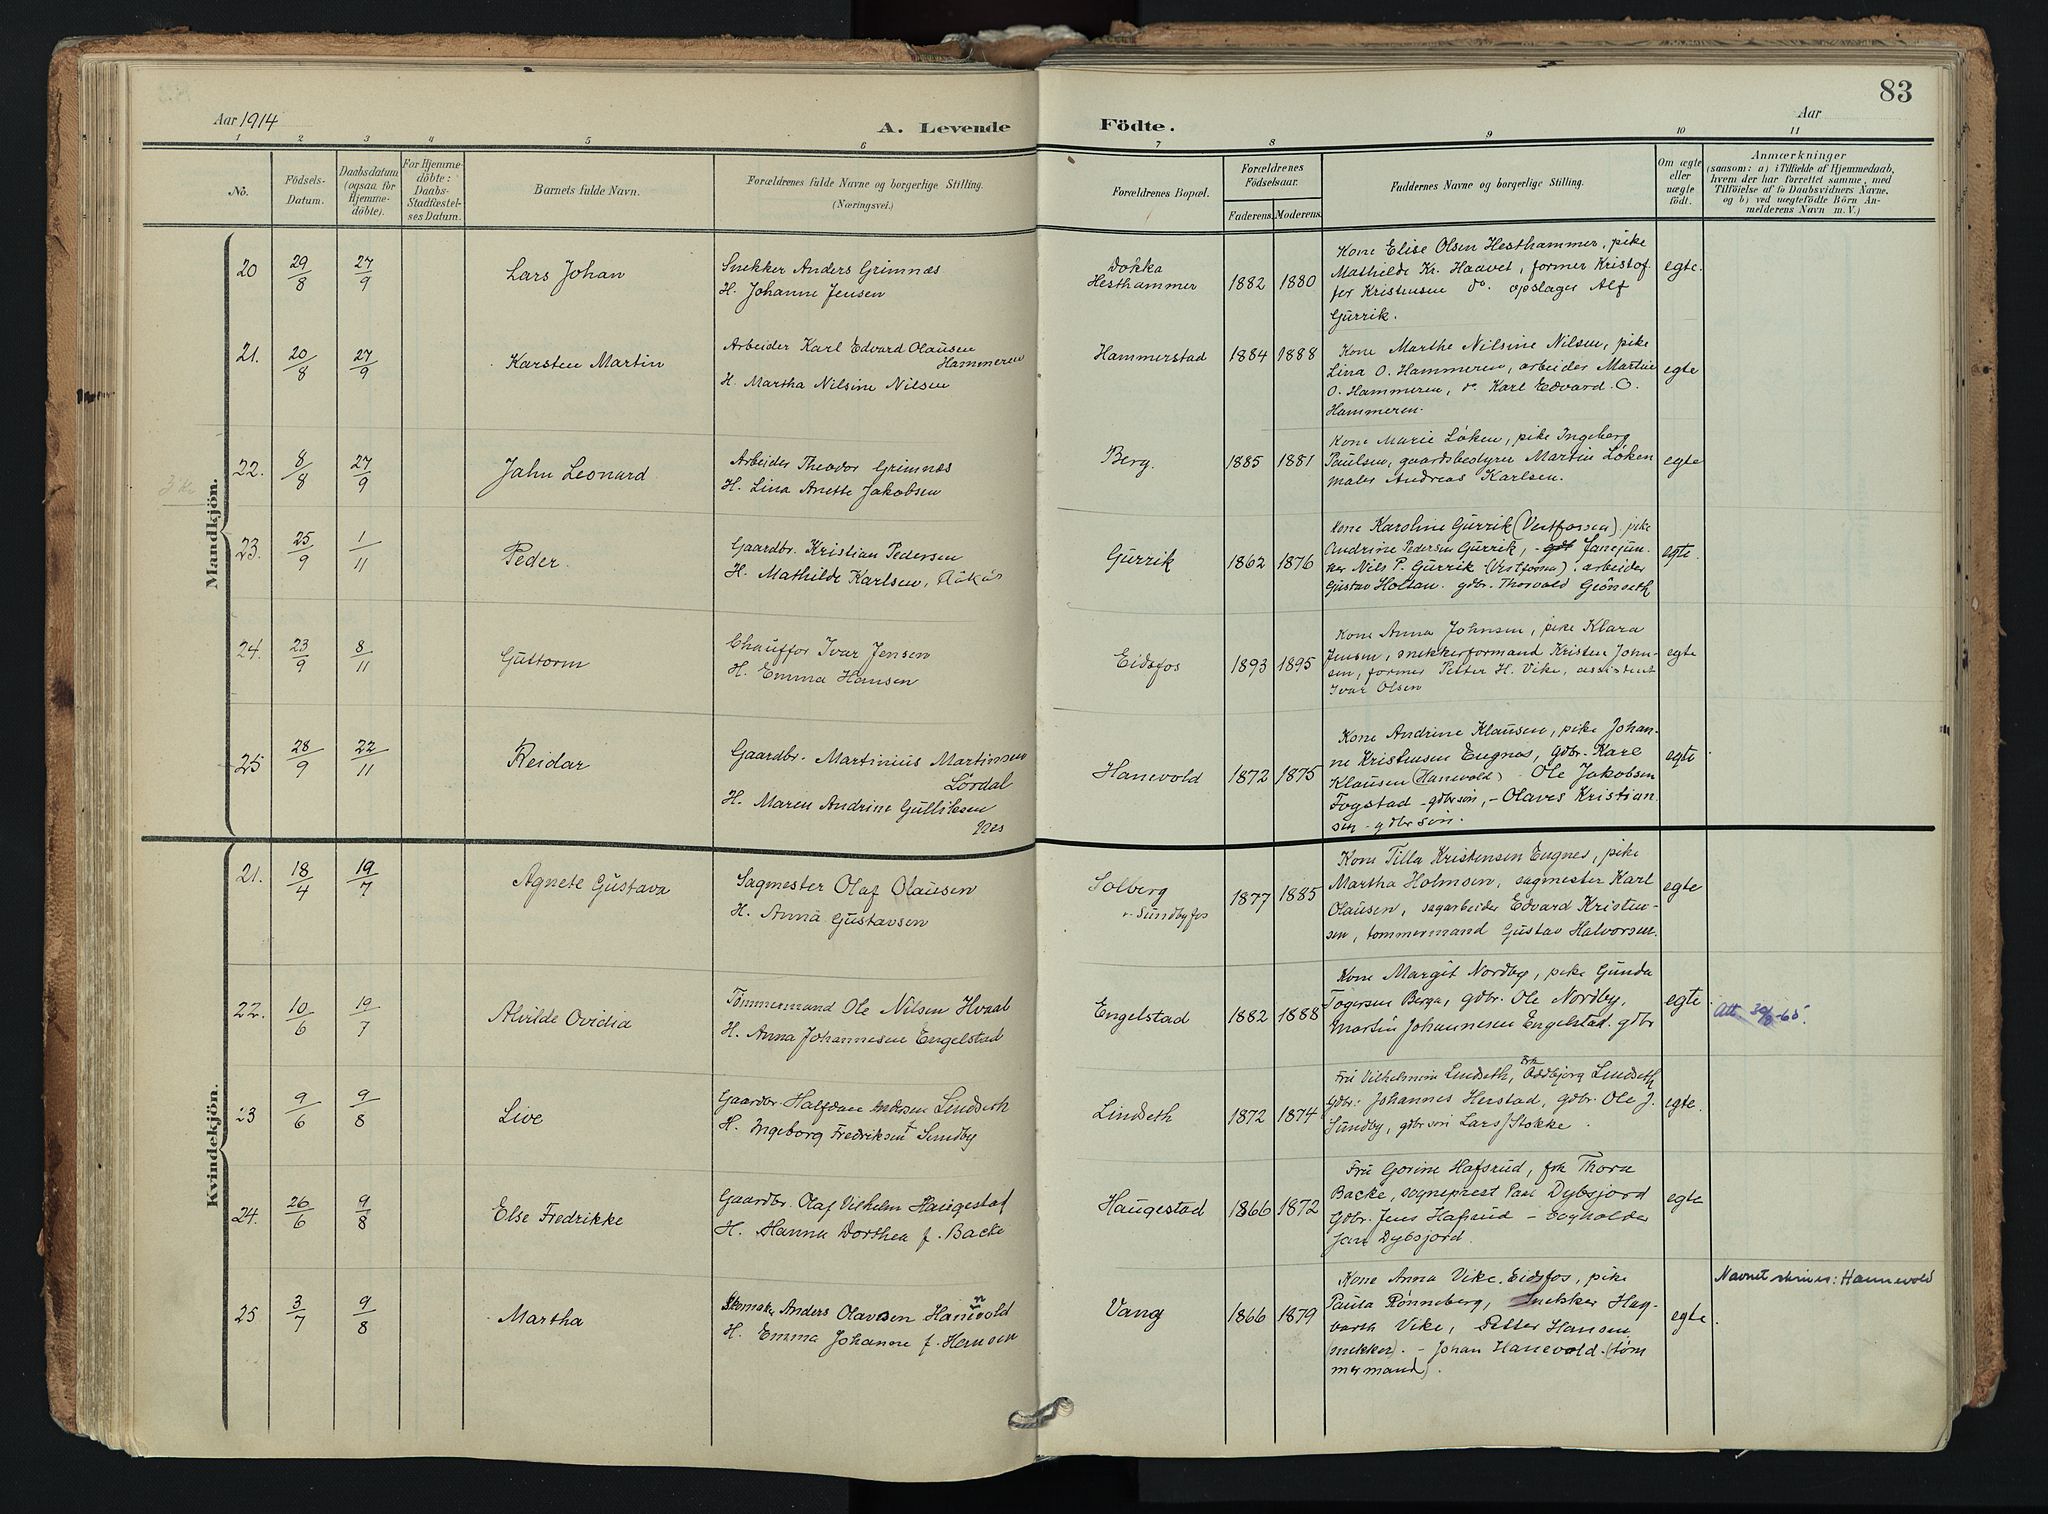 83
Aar 1914
A. Levende Födte.
Aar
1 2 3 4 5 6 7 8 9 10 11
No.
Födsels-
Datum.
Daabsdatum
(ogsaa for
Hjemme-
döbte).
For Hjemme-
döbte:
Daabs-
Stadfæstel-
ses Datum.
Barnets fulde Navn.
Forældrenes fulde Navne og borgerlige Stilling.
(Næringsvei.)
Forældrenes Bopæl.
Forældrenes
Födselsaar.
Faderens.
Moderens.
Faddernes Navne og borgerlige Stilling.
Om ægte
eller
uægte
födt.
Anmærkninger
(saasom: a) i Tilfælde af Hjemmedaab,
hvem der har forrettet samme, med
Tilföielse af to Daabsvidners Navne,
og b) ved uægtefödte Börn An-
melderens Navn m. V.)
Mandkjön.
20 29/8 27/9 Lars Johan
Snekker Anders Grimnæs
H. Johanne Jensen
Dokka
Hesthammer
1882 1880
Kone Elise Olsen Hesthammer, pike
Mathilde Kr. Haavet, former Kristof
fer Kristensen do. opslager Alf
Gurrik.
egte.
21. 20/8 27/9 Karsten Martin
Arbeider Karl Edvard Olausen
Hammeren
H. Martha Nilsine Nilsen
Hammerstad
1884 1888
Kone Marthe Nilsine Nilsen, pike
Lina O. Hammeren, arbeider Martin
O. Hammeren, do Karl Edvard O.
Hammeren.
egte
22. 8/8 27/9 Jahn Leonard
Arbeider Theodor Grimnæs
H. Lina Anette Jakobsen
Berg.
1885 1881
Kone Marie Löken, pike Ingeberg
Paulsen, gaardsbestyrer Martin Løken
maler Andreas Karlsen.
egte
23. 25/9 1/11 Peder.
Gaardbr. Kristian Pedersen
H. Mathilde Karlsen, Råkås
Gurrik
1862 1876
Kone Karoline Gurrik (Vestfossen), pike
Andrine Pedersen Gurrik, -
ker Nils P. Gurrik (Vestfossen), arbeider
Gustav Holtan. gdbr. Thorvald Grönseth
egte.
24. 23/9 8/11 Guttorm
Chauffør Ivar Jensen
H. Emma Hansen
Eidsfos
1893 1895
Kone Anna Johnsen, pike Klara
Jensen, snekkerformand Kristen John-
sen, former Petter H. Vike, assistent
Ivar Olsen
egte
25 28/9 22/11 Reidar
Gaardbr. Martinius Martinsen
Lördal
H. Maren Andrine Gulliksen
Nes
Hanevold
1872 1875
Kone Andrine Klausen, pike Johan-
ne Kristensen Engnæs, gdbr. Karl
Klausen (Hanevold) - Ole Jakobsen
Fogstad - gdbr sön, - Olaves Kristian
sen - gdbr sön.
egte
Kvindekjön.
21. 18/4 19/7 Agnete Gustava
Sagmester Olaf Olausen
H. Anna Gustavsen
Solberg
v. Sundbyfos
1877 1885
Kone Tilla Kristensen Engnes, pike
Martha Holmsen, sagmester Karl
Olausen, sagarbeider Edvard Kristen-
sen, tømmermand Gustav Halvorsen.
egte
22. 10/6 19/7 Alvilde Ovidia
Tømmermand Ole Nilsen Hvaal
H. Anna Johannesen Engelstad
Engelstad
1882 1888
Kone Margit Nordby, pike Gunda
Togersen Berga, gdbr. Ole Nordby,
Martin Johannesen Engelstad. gdbr
egte.
Att.
23 9/6 9/8 Live
Gaardbr. Halfdan Andersen Lindseth
H. Ingeborg Fredriksen f Sundby
Lindseth
1872 1874
Fru Vilhelmine Lindseth, Frk Oddbjørg Lindseth
Gdbr. Johannes Herstad, gdbr. Ole J.
Sundby, gdbr sön Lars J Stokke.
egte.
24. 26/6 9/8 Else Fredrikke
Gaardbr. Olaf Vilhelm Haugestad
H. Hanna Dorthea f. Backe
Haugestad
1866 1872
Fru Gorine Hafsrud, frk Thora
Backe, sogneprest Paul Dybsjord
Gdbr. Jens Hafsrud -
Jan Dybsjord.
egte
25 3/7 9/8 Martha
Skomaker Anders Olavesen Hannevold
H. Emma Johanne f. Hansen
Vang
1866 1879
Kone Anna Vike. Eidsfos, pike
Paula Rönneberg, Snekker Hag-
barth Vike, Petter Hansen
(snekker). - Johan Hanevold (tøm
mermand).
egte.
Navnet skrives: Hannevold